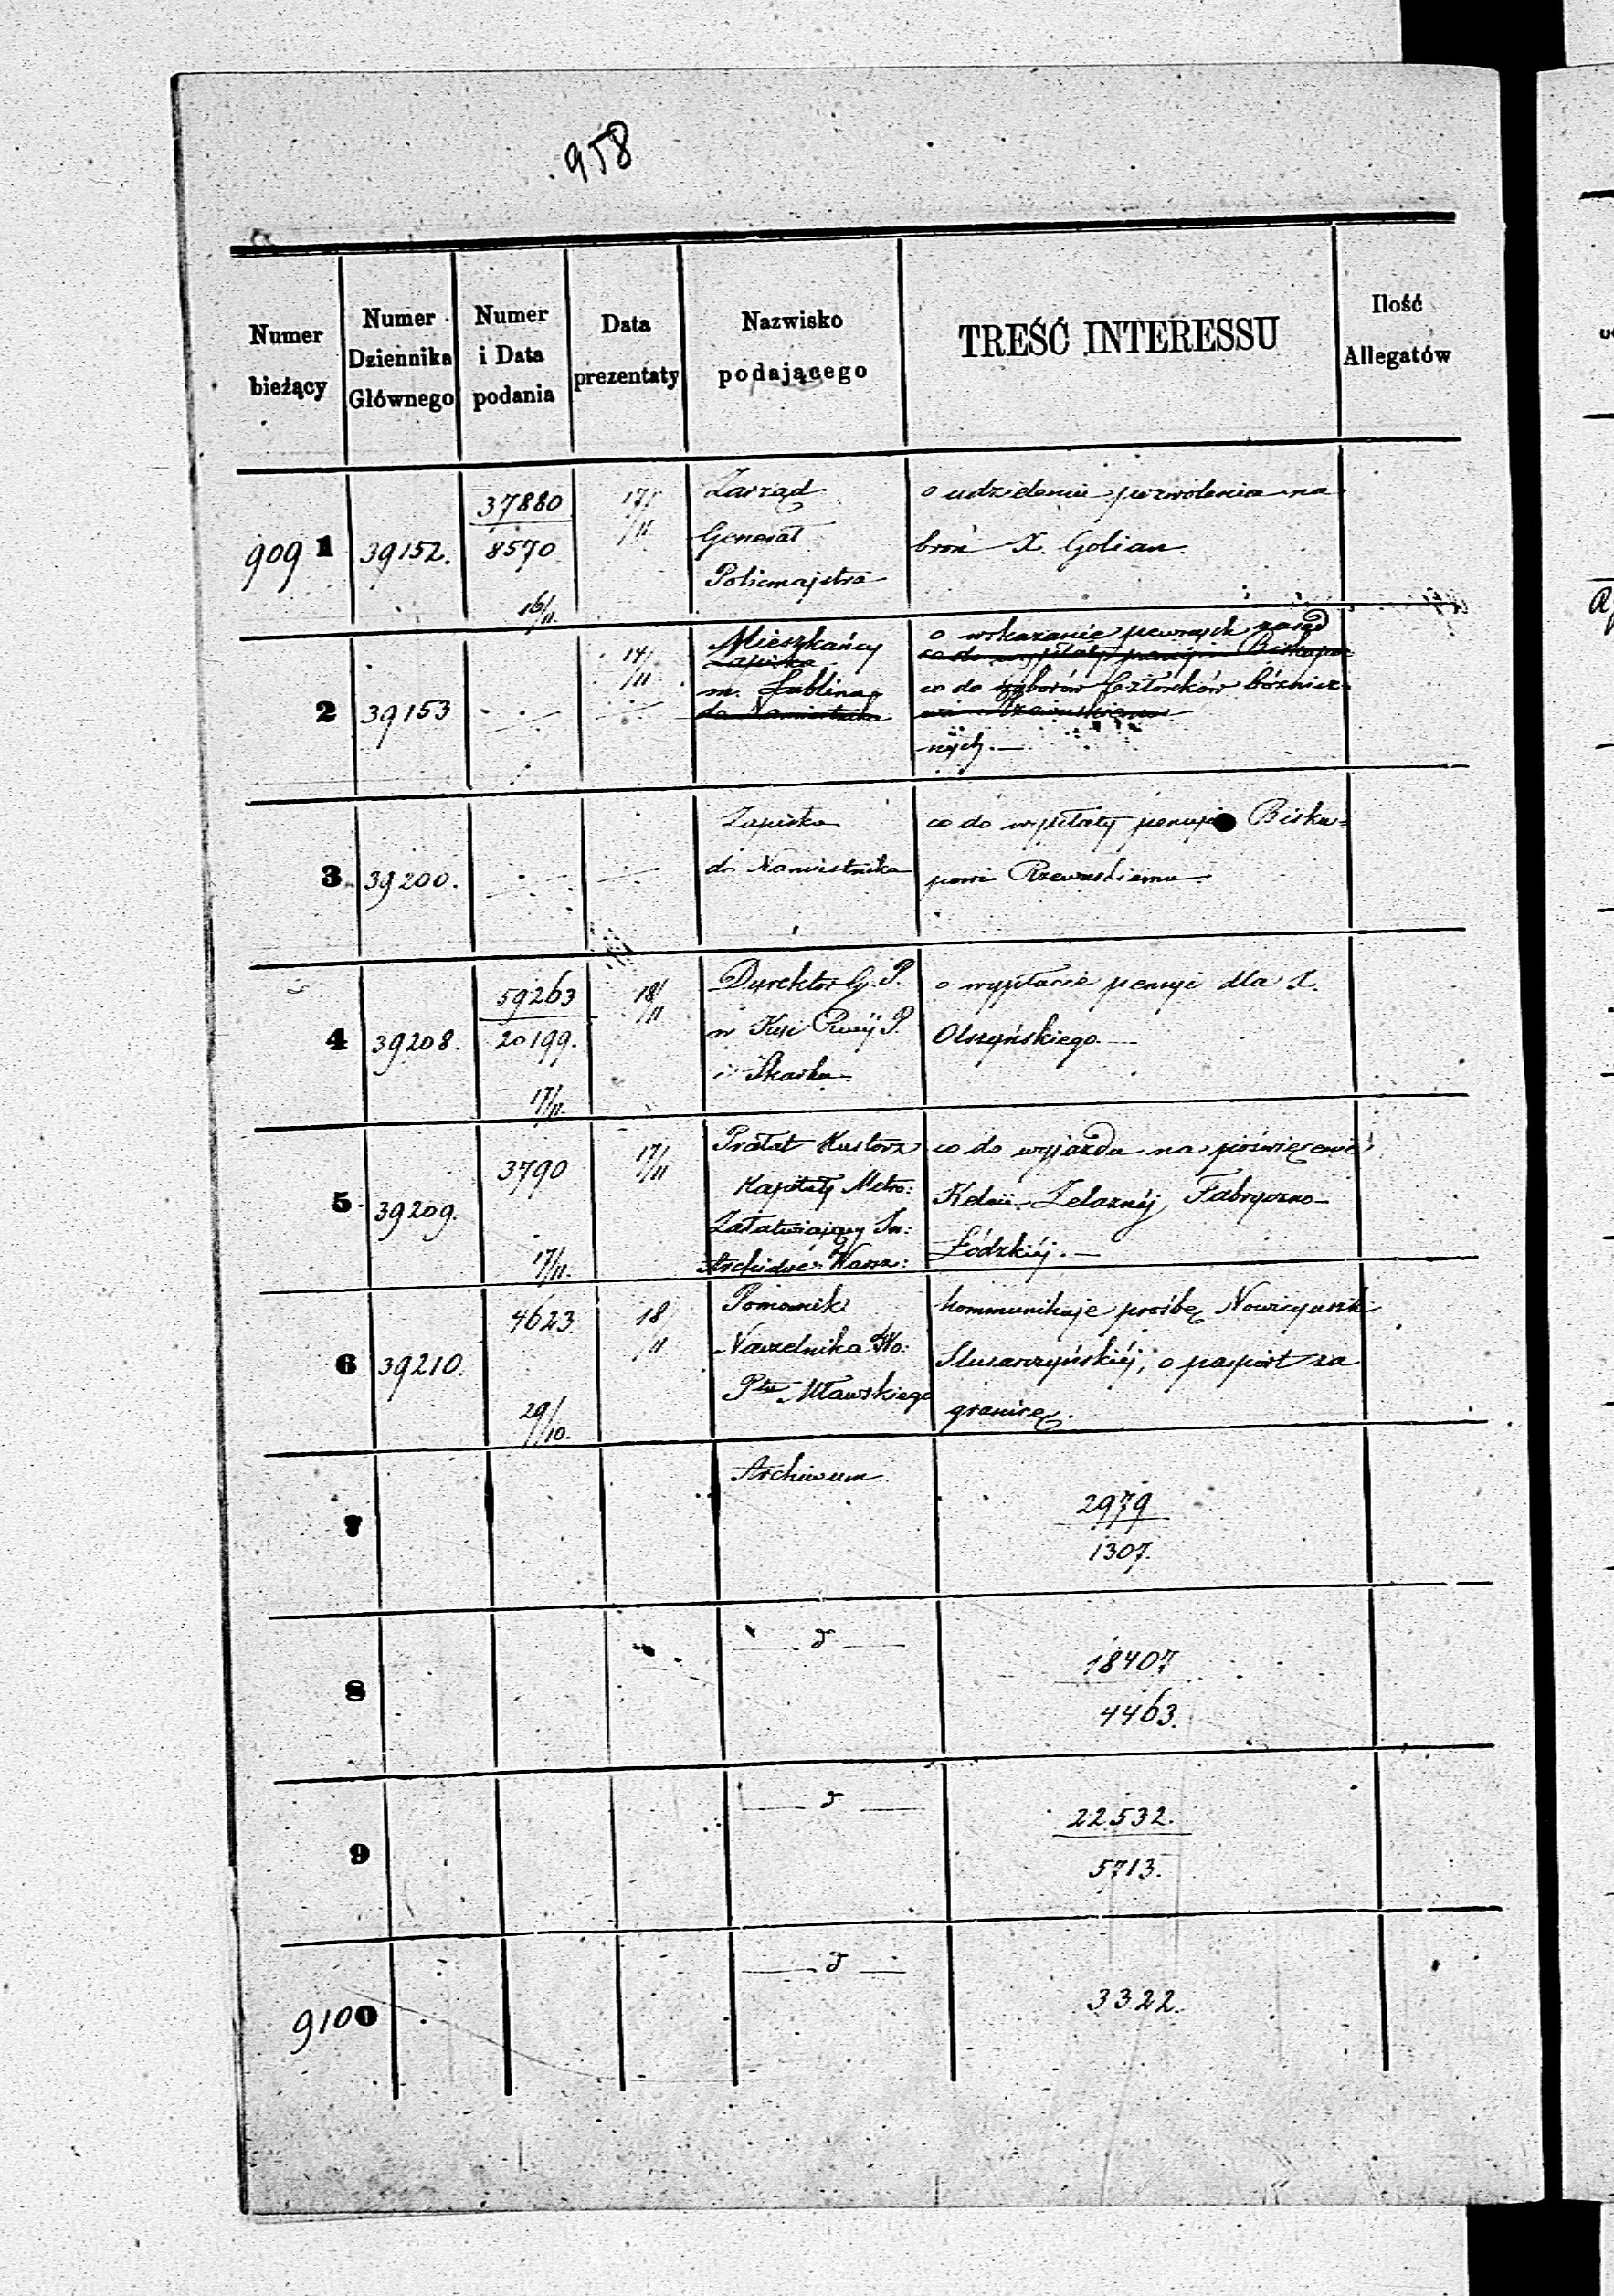 958
Numer bieżący
Numer Dziennika Głównego
Numer i Data podania
Data prezentaty
Nazwisko podającego
TREŚĆ INTERESSU
Ilość Allegatów
9091
39152.
37880
8570
16/11.
17/11
Zarząd
Generał
Policmajstra
o udzielenie pozwolenia na
broń X. Golian.
2
39153
14/11
Mieszkańcy
Zapiska
m. Lublina
do Namiestnika
o wskazanie pewnych zasad
co do wypłaty pensyi Biskupo
co do wyborów Członków bóżnicz
wi Rzewuskiemu
nych.
3
39200.
Zapiska
do Namiestnika
co do wypłaty pensyi Bisku=
powi Rzewuskiemu
4
39208.
59263
20199.
17/11.
18/11
Dyrektor G. P.
w Kssi P.
i Skarbu
o wypłacie pensyi dla X.
Olszyńskiego.
5
39209.
3790
17/11.
17/11
Prałat Kustosz
Kapituły Metro:
Załatwiający In:
Archidiec: Warsz:
co do wyjazdu na poświęcenie
Kolei Żelaznéj, Fabryczno-
Łódzkiéj.
6
39210.
4623.
29/10.
18/11
Pomocnik
Naczelnika Wo:
Ptu Mławskiego
kommunikuje prośbę Nowicyuszki
Slusarczyńskiéj, o pasport za
granicę.
7
Archiwum
2979
1307.
8
d
18407
4463.
9
d
22532.
5713.
9100
d
3322.